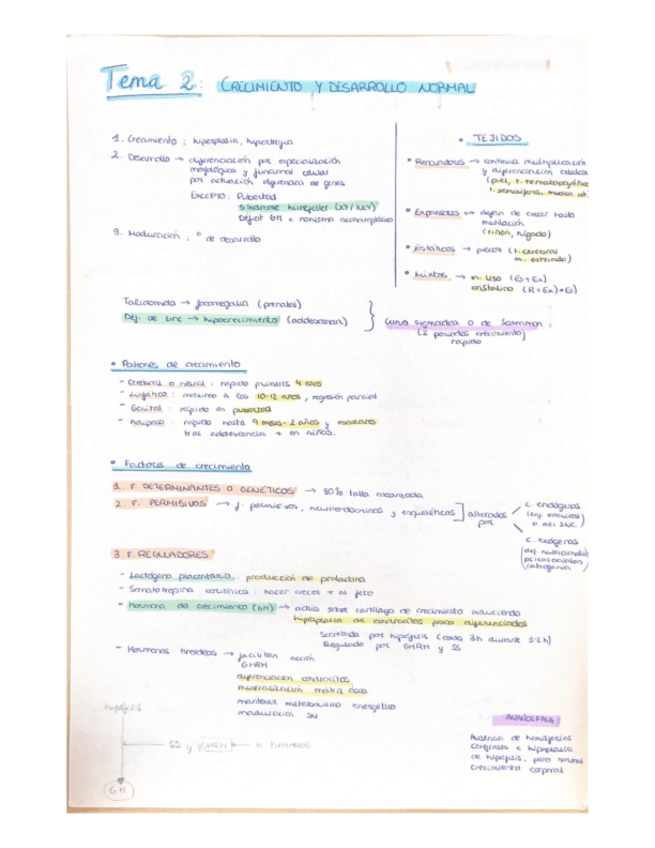 Tema 2: CRECIMIENTO Y DESARROLLO NORMAL
1. Crecimiento: hiperplasia, hipertrofia
2. Desarrollo → diferenciación por especialización
morfológica y funcional celular
por activación diferencial de genes
EXCEPTO: Pubertad
síndrome Klinefelter
Déficit GH
3. Maduración: º de desarrollo
• TEJIDOS
• Renovadores → continua multiplicación
y diferenciación celular
(piel, t. hematopoyético
t. seminíferos, mucosa
• Expansivos → dejan de crecer hasta
mutilación
(riñón, hígado)
• Estáticos → precoz (t. cerebral
m. estriado)
• Mixtos → m. liso (Es + Ex)
cristalino (R+Ex)+Es)
Talidomida → focomegalia (prenatal)
Def. de zinc → hipocrecimiento (adolescencia)
curva sigmoidea o de Scammon
(2 periodos crecimiento)
rápido
• Patrones de crecimiento
- Cerebral o neural: rápido primeros 4 años
- Linfático: máximo a los 10-12 años, regresión parcial
- Genital: rápido en pubertad
- Adiposo: rápido hasta 9 meses - 2 años y escolares
tras adolescencia + en niñas.
• Factores de crecimiento
1. F. DETERMINANTES O GENÉTICOS → 80% talla alcanzada
2. F. PERMISIVOS → f. permisivos, neuroendocrinos y esqueléticos
alterados
por
c. endógenas
(enf. crónicas)
o del SNC)
c. exógenas
(def. nutricionales
psicosociales
iatrogenia)
3. F. REGULADORES
- Lactógeno placentario: producción de prolactina
- Somatotropina coriónica: hacer crecer + al feto
- Hormona del crecimiento (GH) → actúa sobre cartílago de crecimiento induciendo
hiperplasia de condrocitos poco diferenciados
Secretada por hipófisis (cada 3h durante
Regulado por GHRH y SS
- Hormonas tiroideas → facilitan acción
GHRH
diferenciación condrocitos
mineralización matriz ósea
mantener metabolismo energético
maduración SN
hipófisis
SS y GHRH
GH
Ausencia de hemisferios
cerebrales e hipoplasia
de hipófisis, pero normal
crecimiento corporal